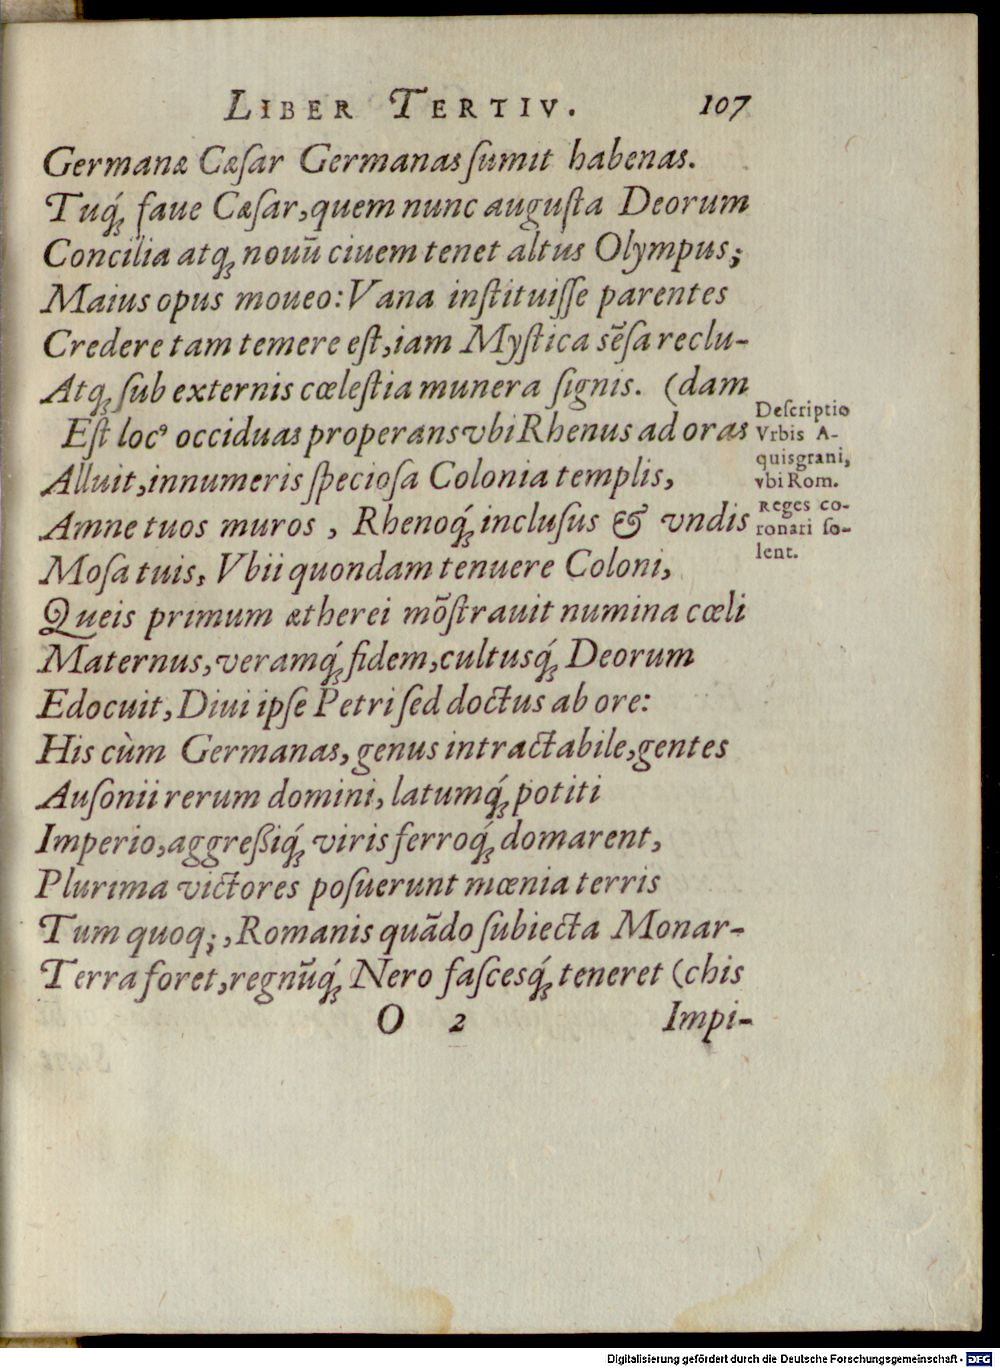 LIBER TERTIV. 107
Germanæ Cæſar Germanas ſumit habenas.
Tuq́; faue Cæſar, quem nunc auguſta Deorum
Concilia atq; nouũ ciuem tenet altus Olympus;
Maius opus moueo: Vana inſtituiſſe parentes
Credere tam temere eſt, iam Myſtica sẽſa reclu-
Atq; ſub externis cœleſtia munera ſignis. (dam
Eſt locꝰ occiduas properans vbi Rhenus ad oras
Alluit, innumeris ſpecioſa Colonia templis,
Amne tuos muros, Rhenoq́; incluſus & vndis
Moſa tuis, Vbii quondam tenuere Coloni,
Queis primum ætherei mõſtrauit numina cœli
Maternus, veramq́; fidem, cultusq́; Deorum
Edocuit, Diui ipſe Petri ſed doctus ab ore:
His cùm Germanas, genus intractabile, gentes
Auſonii rerum domini, latumq́; potiti
Imperio, aggreßiq́; viris ferroq́; domarent,
Plurima victores poſuerunt mœnia terris
Tum quoq;, Romanis quãdo ſubiecta Monar-
Terra foret, regnũq́; Nero faſcesq́; teneret (chis
O 2 Impi-
Deſcriptio
Vrbis A-
quisgrani,
vbi Rom.
Reges co-
ronari ſo-
lent.
Digitalisierung gefördert durch die Deutsche Forschungsgemeinschaft - DFG